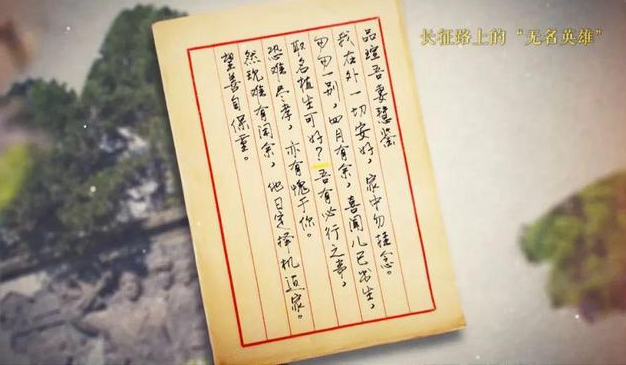 长征路上的“无名英雄”
品瑄吾妻慧鉴
我在外一切安好，家中勿挂念。
匆匆一别，四月有余，喜闻儿已出生，
取名植生可好？吾有必行之事，
恐难尽孝，亦有愧于你。
然现难有闲余，他日定择机返家。
望善自保重。